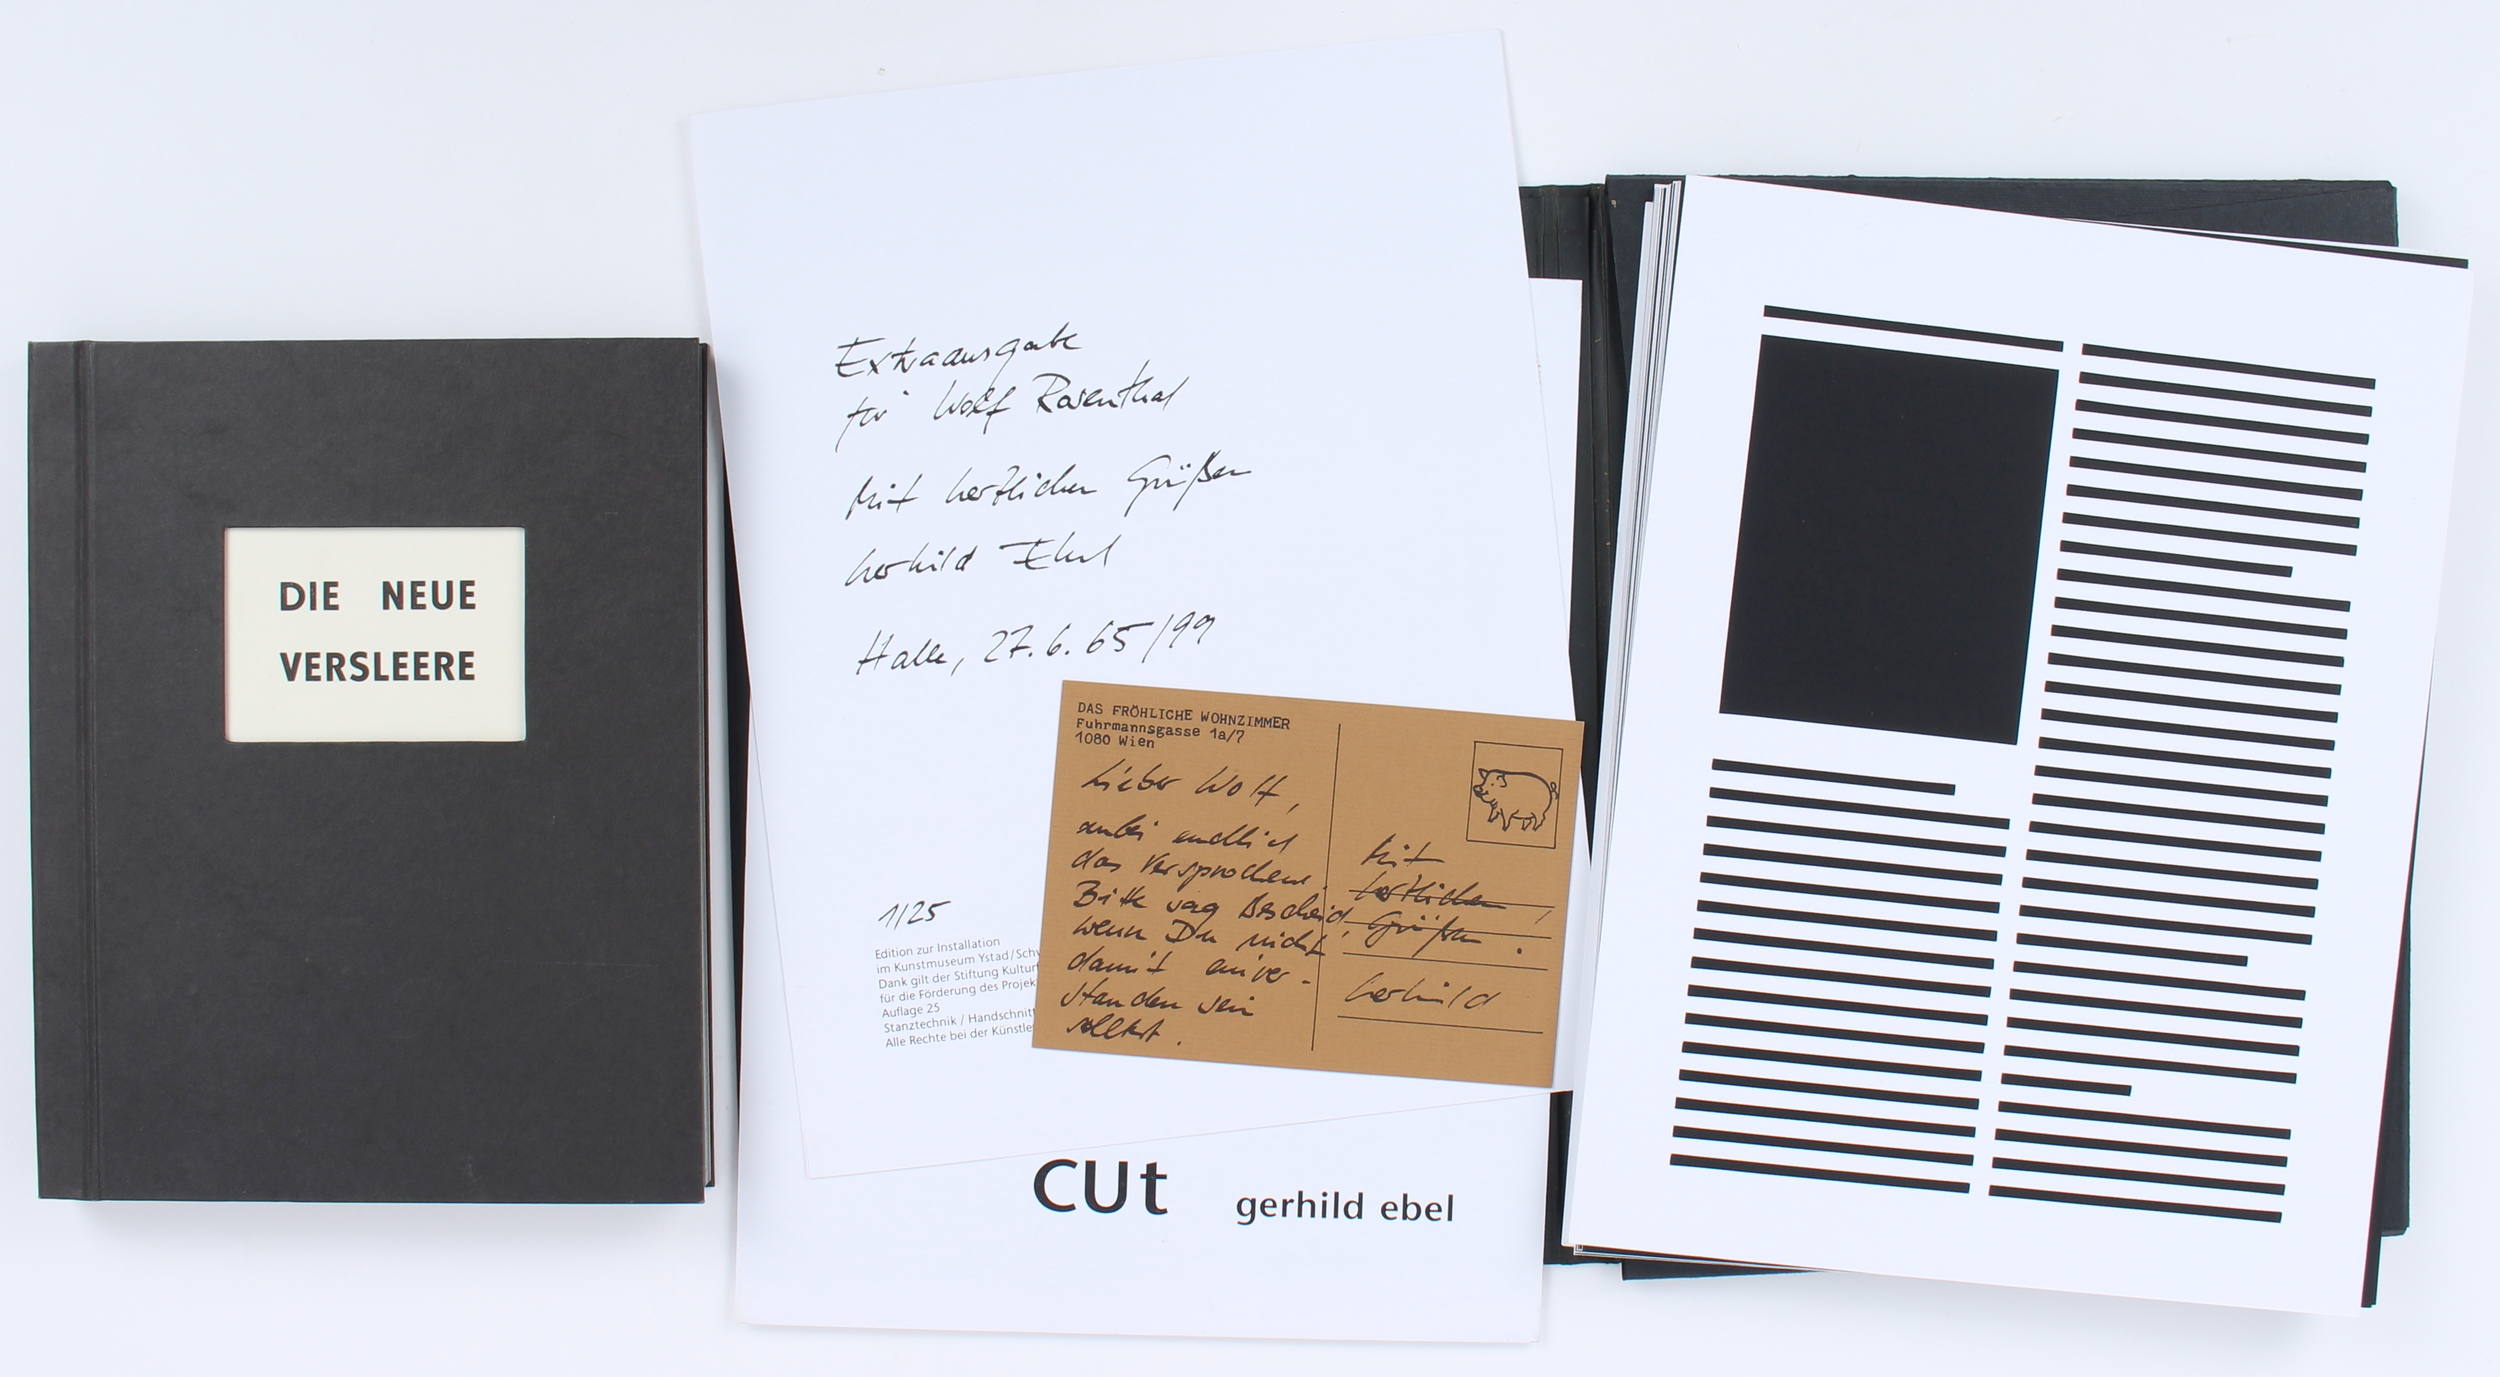 DIE NEUE
VERSLEERE
Extraausgabe
für Wolf Rosenthal
Mit herzlichen Grüßen
Gerhild Ebel
Halle, 27.6.65/99
1/25
Edition zur Installation
im Kunstmuseum Ystad/Schw
Dank gilt der Stiftung Kultur
für die Förderung des Projek
Auflage 25
Stanztechnik / Handschnitt
Alle Rechte bei der Künstle
DAS FRÖHLICHE WOHNZIMMER
Fuhrmannsgasse 1a/7
1080 Wien
Lieber Wolf,
anbei endlich
das Versprochene.
Bitte sag Bescheid,
wenn Du nicht
damit einver-
standen sein
solltest.
Mit
herzlichen
Grüßen.
Gerhild
cut gerhild ebel